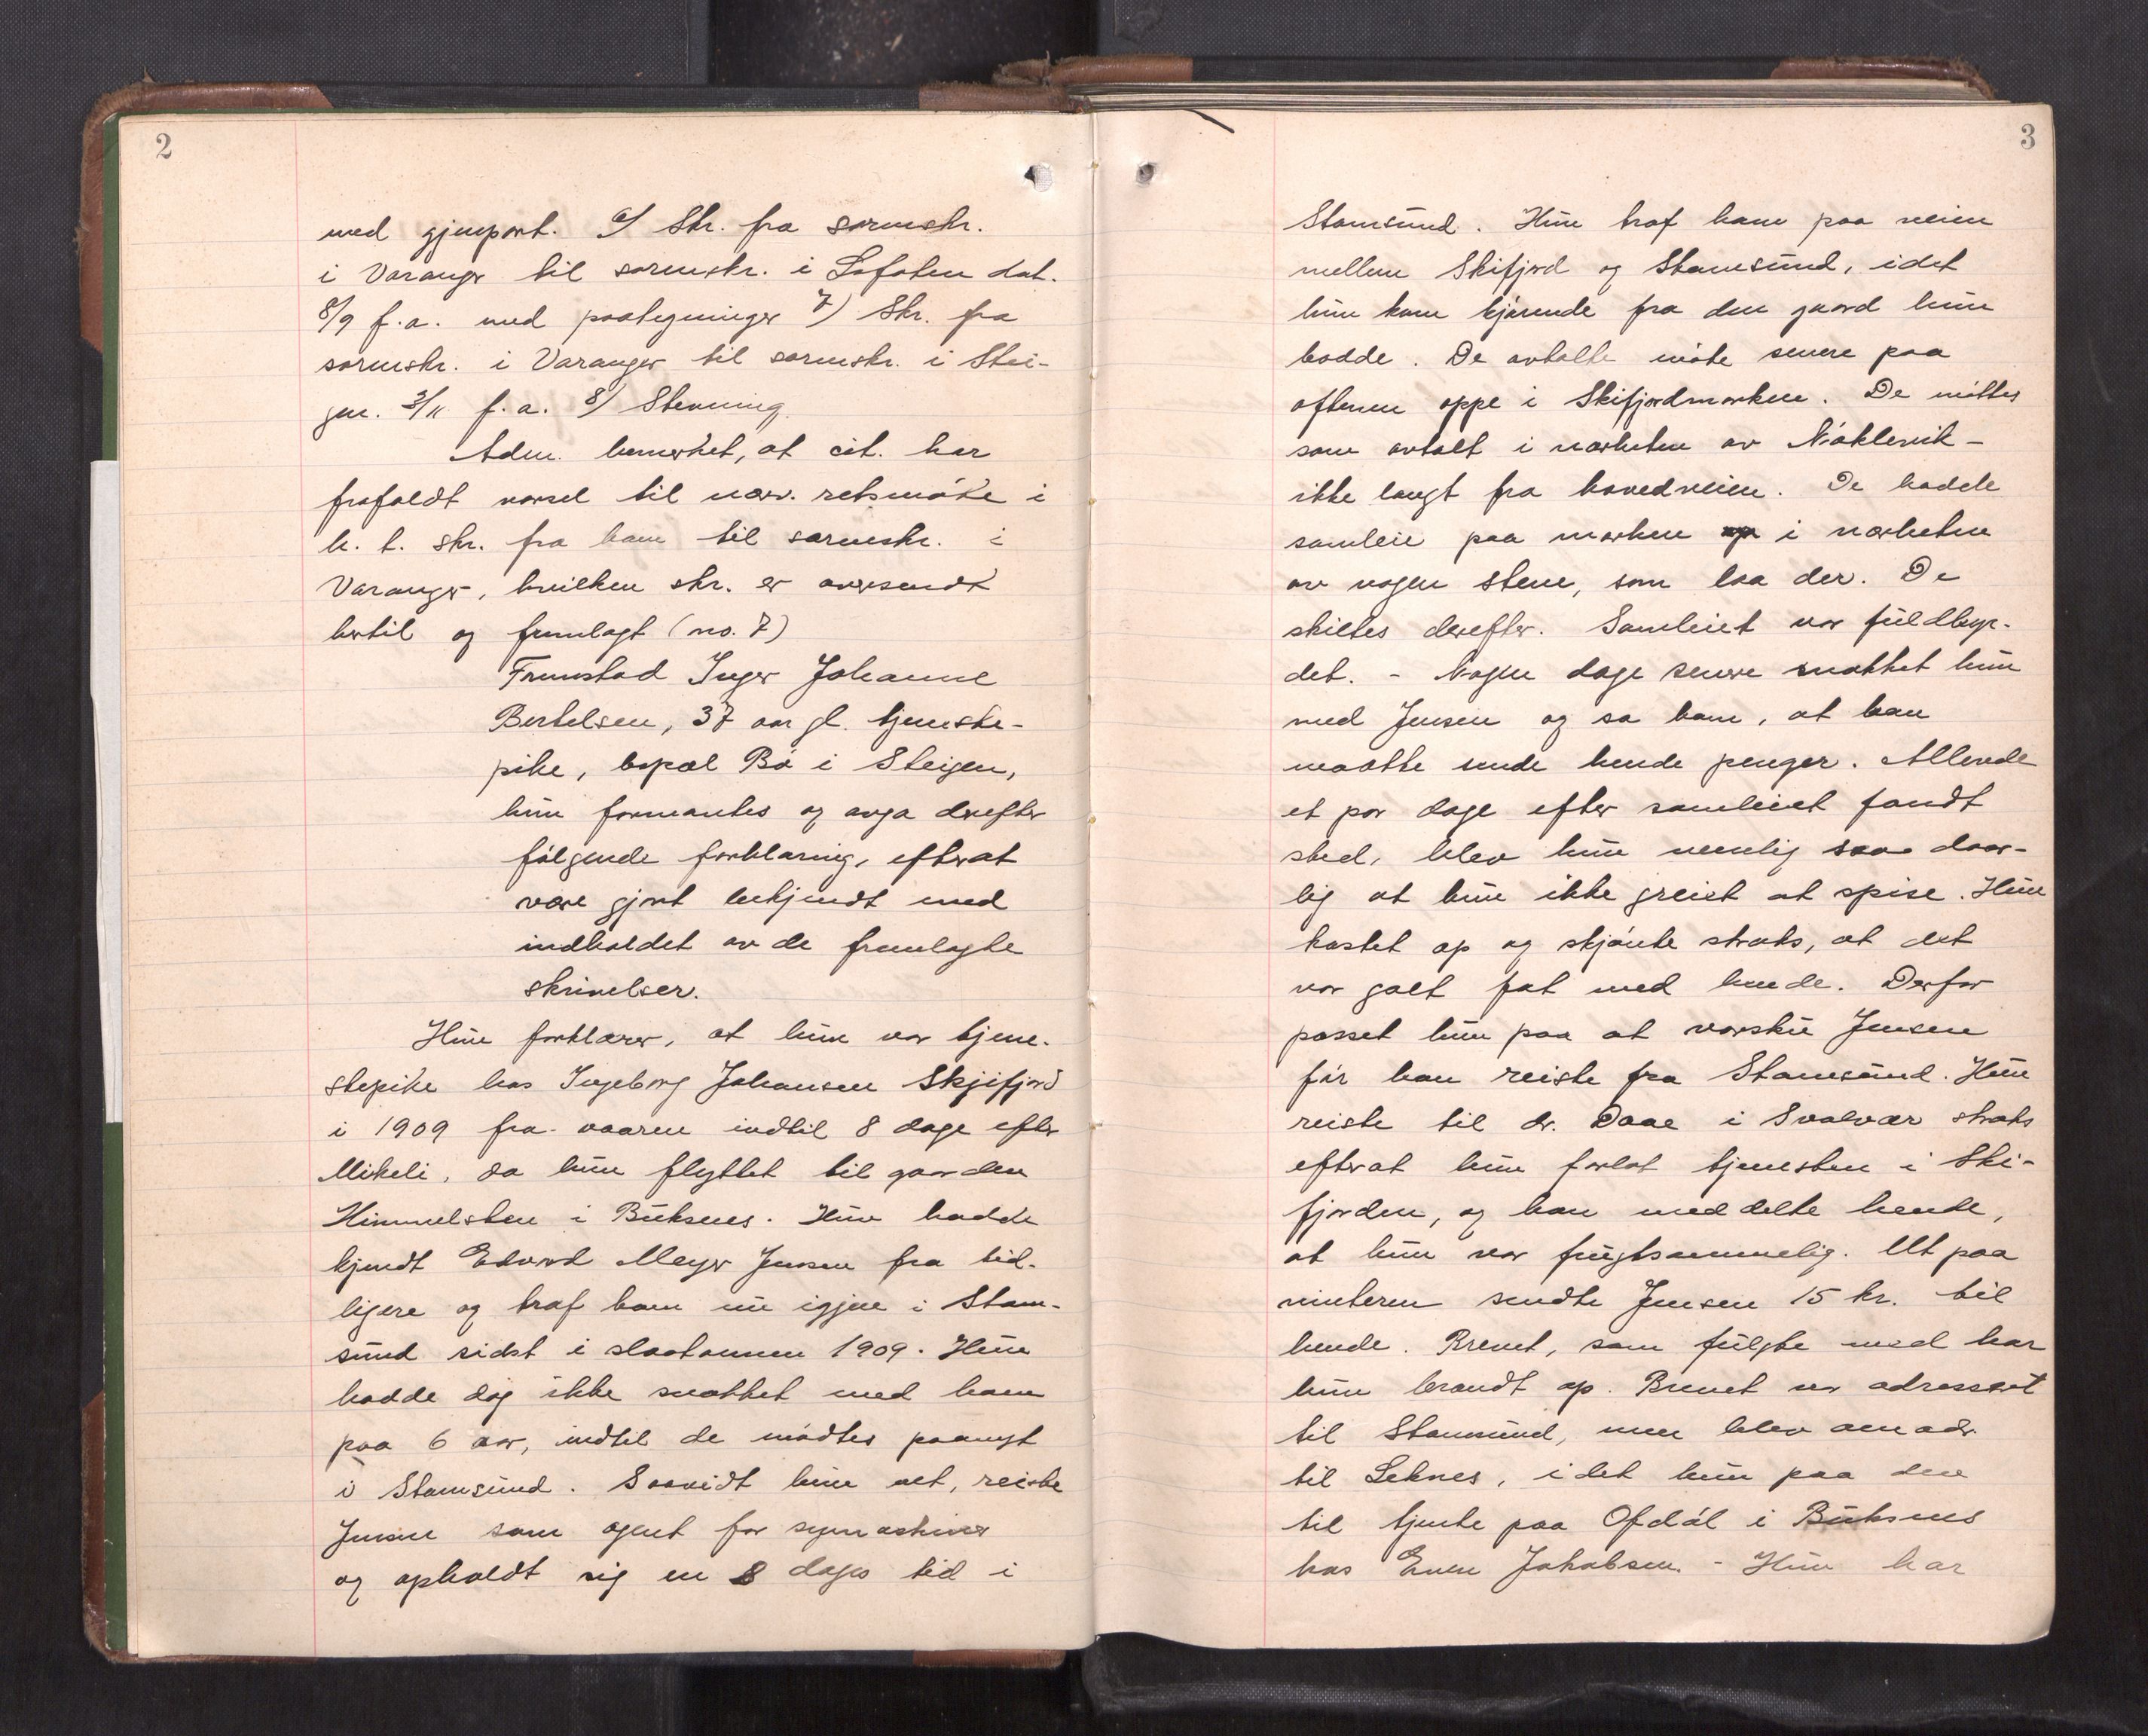 2
med gjenpart. 6/ Skr. fra sorenskr.
i Varanger til sorenskr. i Lofoten dat.
8/9 f.a. med paategninger 7) Skr. fra
sorenskr. i Varanger til sorenskr. i Stei-
gen. 3/11 f.a. 8/ Stevning.
Adm. bemerket, at cit. har
frafaldt varsel til nærv. retsmöte i
h. t. skr. fra ham til sorenskr. i
Varanger, hvilken skr. er oversendt
hertil og fremlagt (no. 7)
Fremstod Inger Johanne
Bertelsen, 37 aar gl. tjeneste-
pike, bopæl Bö i Steigen,
hun formantes og avga derefter
fölgende forklaring, efterat
være gjort bekjendt med
indholdet av de fremlagte
skrivelser.
Hun forklarer, at hun var tjene-
stepike hos Ingeborg Johansen Skjifjord
i 1909 fra vaaren indtil 8 dage efter
Mikeli, da hun flyttet til gaarden
Himmelsten i Buksnes. Hun hadde
kjendt Edvard Meyer Jensen fra tid-
ligere og traf ham nu igjen i Stam-
sund sidst i slaatonnen 1909. Hun
hadde dog ikke snakket med ham
paa 6 aar, indtil de mödtes paanyt
i Stamsund. Saavidt hun vet, reiste
Jensen som agent for symaskiner
og opholdt sig en 8 dages tid i
3
Stamsund. Hun traf ham paa veien
mellem Skifjord og Stamsund, idet
hun kom kjörende fra den gaard hun
hadde. De avtalte möte senere paa
aftenen oppe i Skifjordmarken. De möttes
som avtalt i nærheten av Nöklevik -
ikke langt fra hovedveien. De hadde
samleie paa marken i nærheten
av nogen stene, som laa der. De
skiltes derefter. Samleiet var fuldbyr-
det. - Nogen dage senere snakket hun
med Jensen og sa ham, at han
maatte sende hende penger. Allerede
et par dage efter samleiet fandt
sted, blev hun nemlig saa daar-
lig at hun ikke greiet at spise. Hun
kastet op og skjönte straks, at det
var galt fat med hende. Derfor
passet hun paa at varsku Jensen
för han reiste fra Stamsund. Hun
reiste til dr. Daae i Svolvær straks
efterat hun forlot tjenesten i Ski-
fjorden, og han meddelte hende,
at hun var frugtsommelig. Ut paa
vinteren sendte Jensen 15 kr. til
hende. Brevet, som fulgte med har
hun brændt op. Brevet var adressert
til Stamsund, men blev omadr.
til Leknes, idet hun paa den
tid tjente paa Ofdöl i Buksnes
hos Even Jakobsen. - Hun har